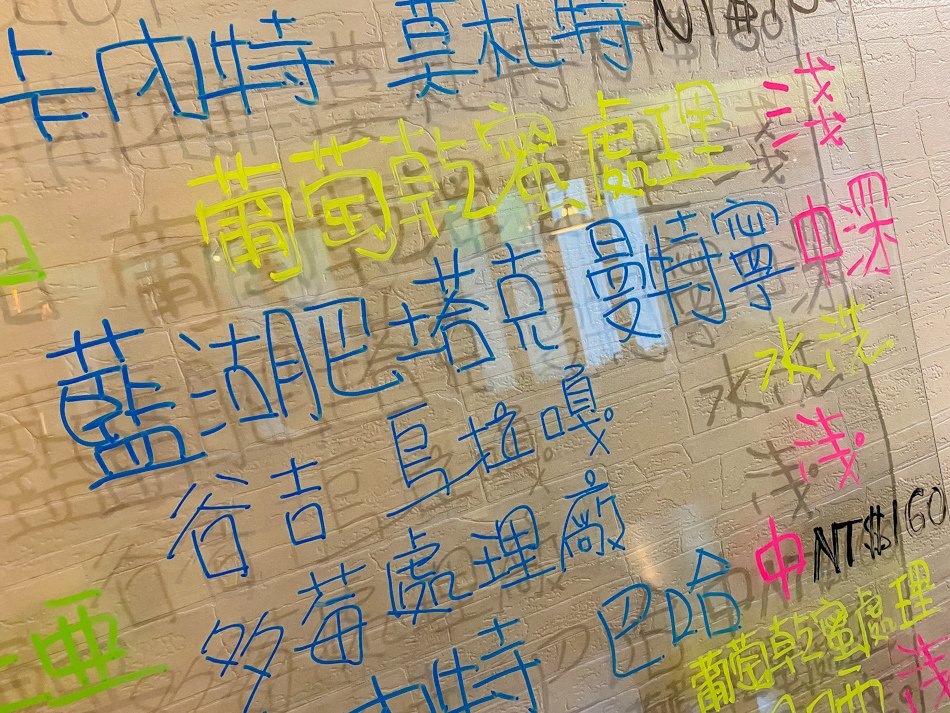 卡內特 莫札特 NT$
葡萄乾蜜處理 淺
藍湖肥塔克 曼特寧 中深
水洗
谷吉 烏拉嘎 浅
多莓處理廠 中 NT$160
亞 內特 巴哈 葡萄乾蜜處理
浅